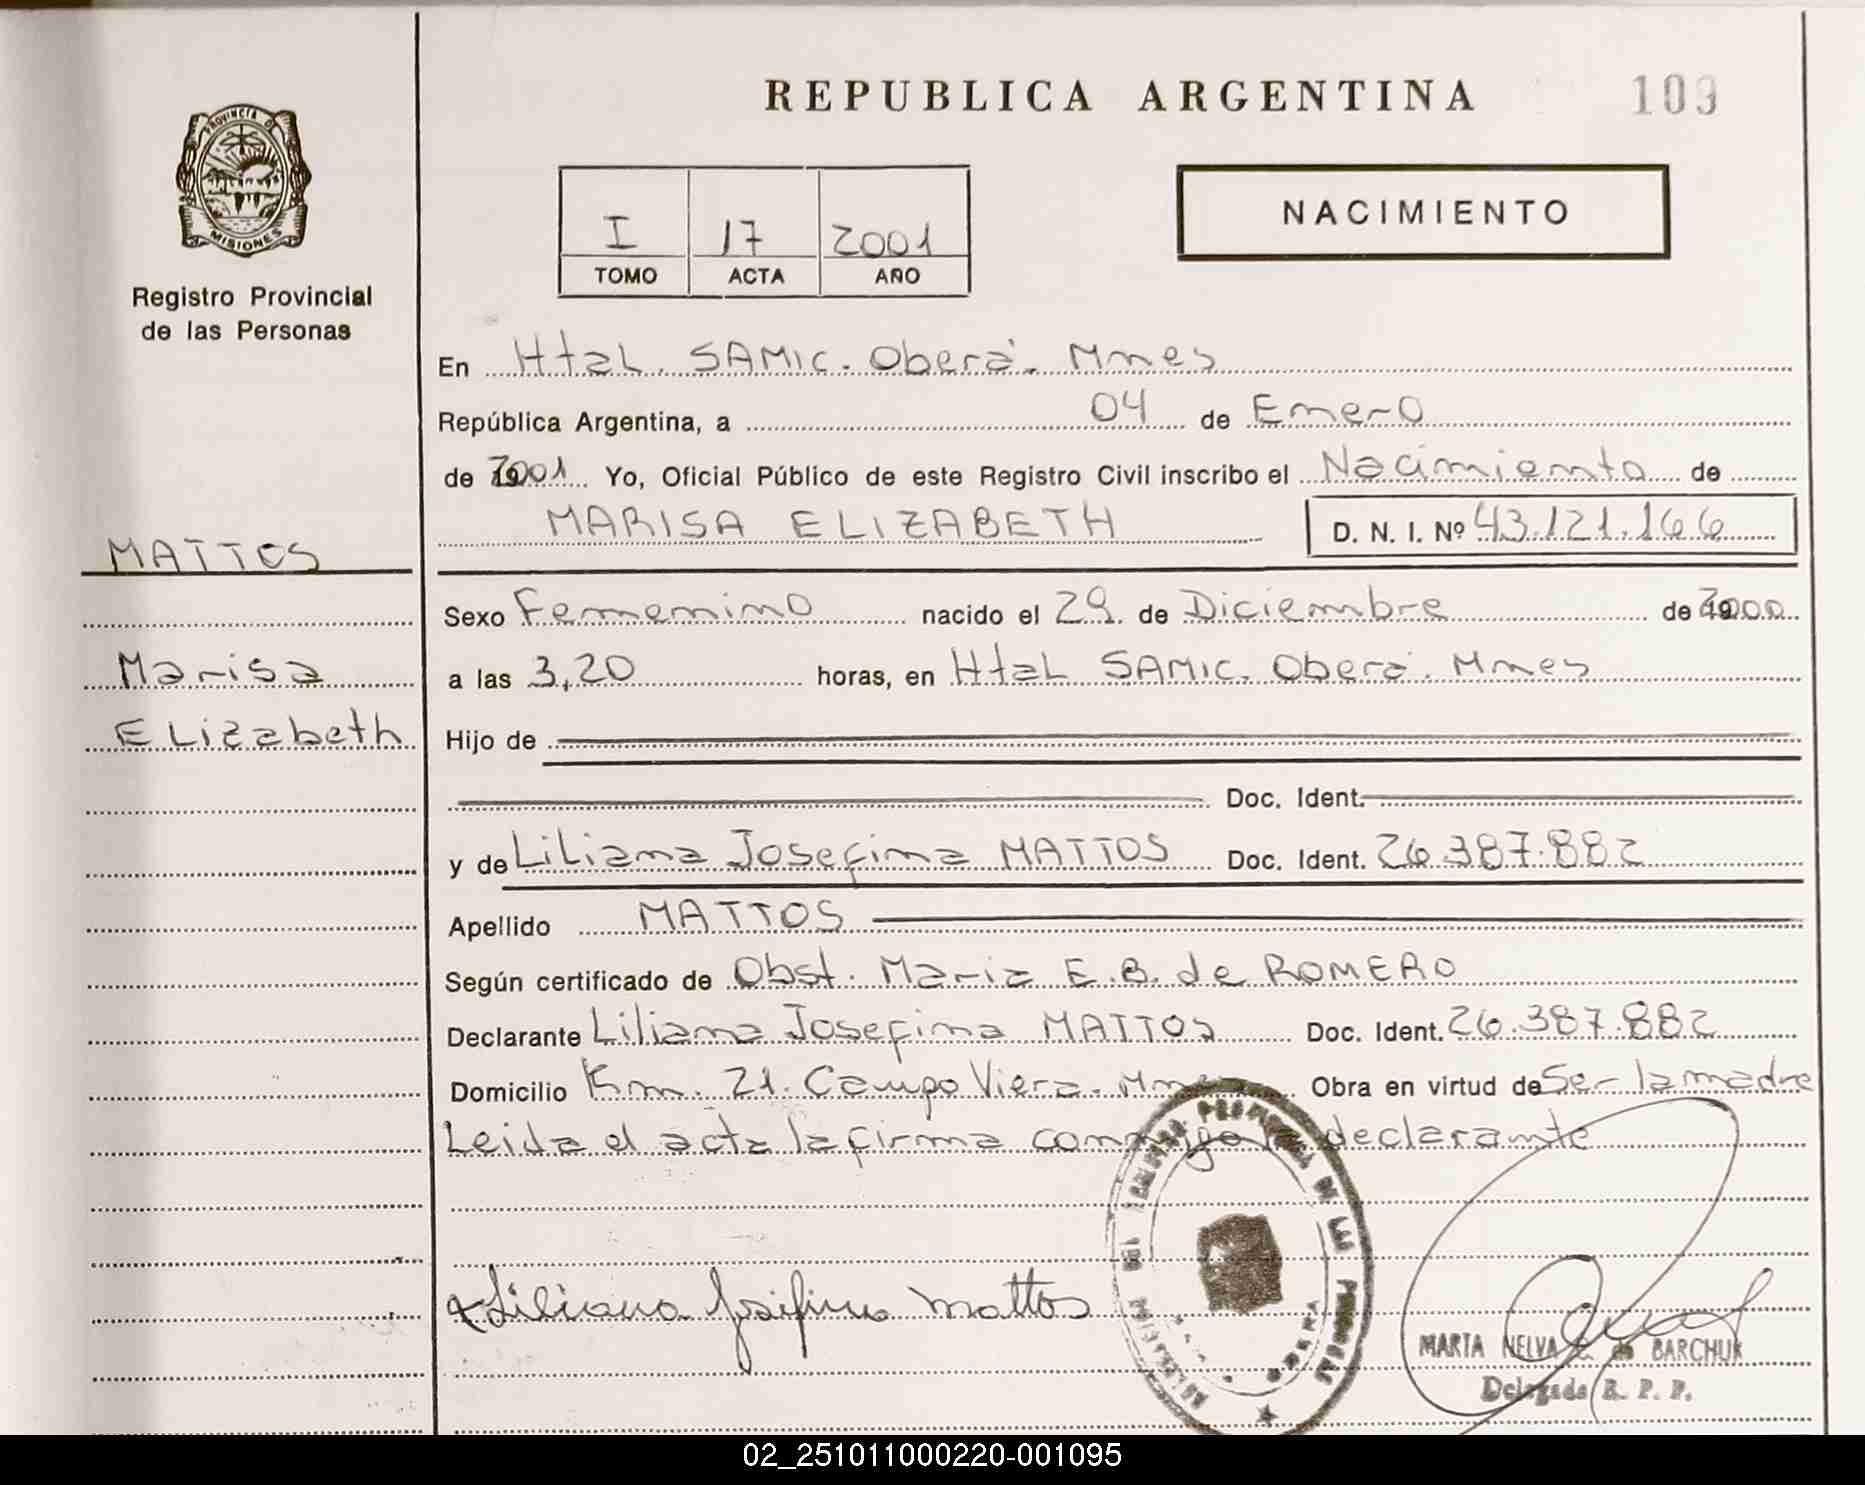 REPUBLICA ARGENTINA
109
PROVINCIA DE
MISIONES
Registro Provincial
de las Personas
I 17 2001
TOMO ACTA AÑO
NACIMIENTO
En Htal. SAMIC. Oberá. Mnes
República Argentina, a 04 de Enero
de 2001 Yo, Oficial Público de este Registro Civil inscribo el Nacimiento de
MARISA ELIZABETH D. N. I. Nº 43.121.166
MATTOS
Sexo Femenino nacido el 29 de Diciembre de 2000
Marisa
a las 3,20 horas, en Htal SAMIC. Oberá. Mnes
Elizabeth
Hijo de
Doc. Ident.
y de Liliana Josefina MATTOS Doc. Ident. 26.387.882
Apellido MATTOS
Según certificado de Obst. Maria E. B. de ROMERO
Declarante Liliana Josefina MATTOS Doc. Ident. 26.387.882
Domicilio Km. 21. Campo Viera. Mnes Obra en virtud de Ser la madre
Leida el acta la firma conmigo la declarante
Liliana Josefina Mattos
MARTA NELVA de BARCHUK
Delegada R. P. P.
02_251011000220-001095